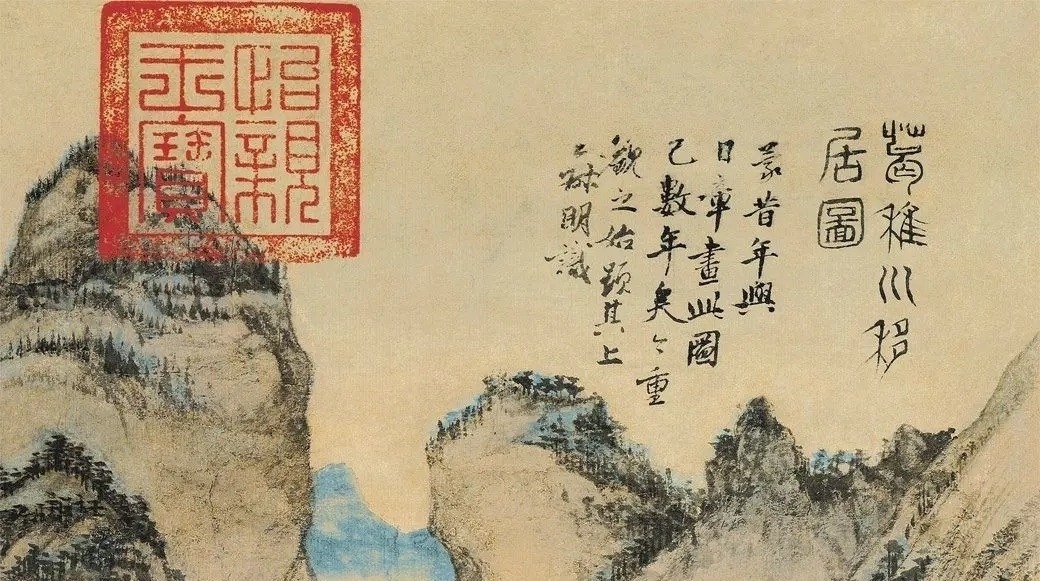 葛稚川移
居圖
蒙昔年與
日章畫此圖
已數年矣今重
觀之始題其上
王叔明識
怡親
王寶